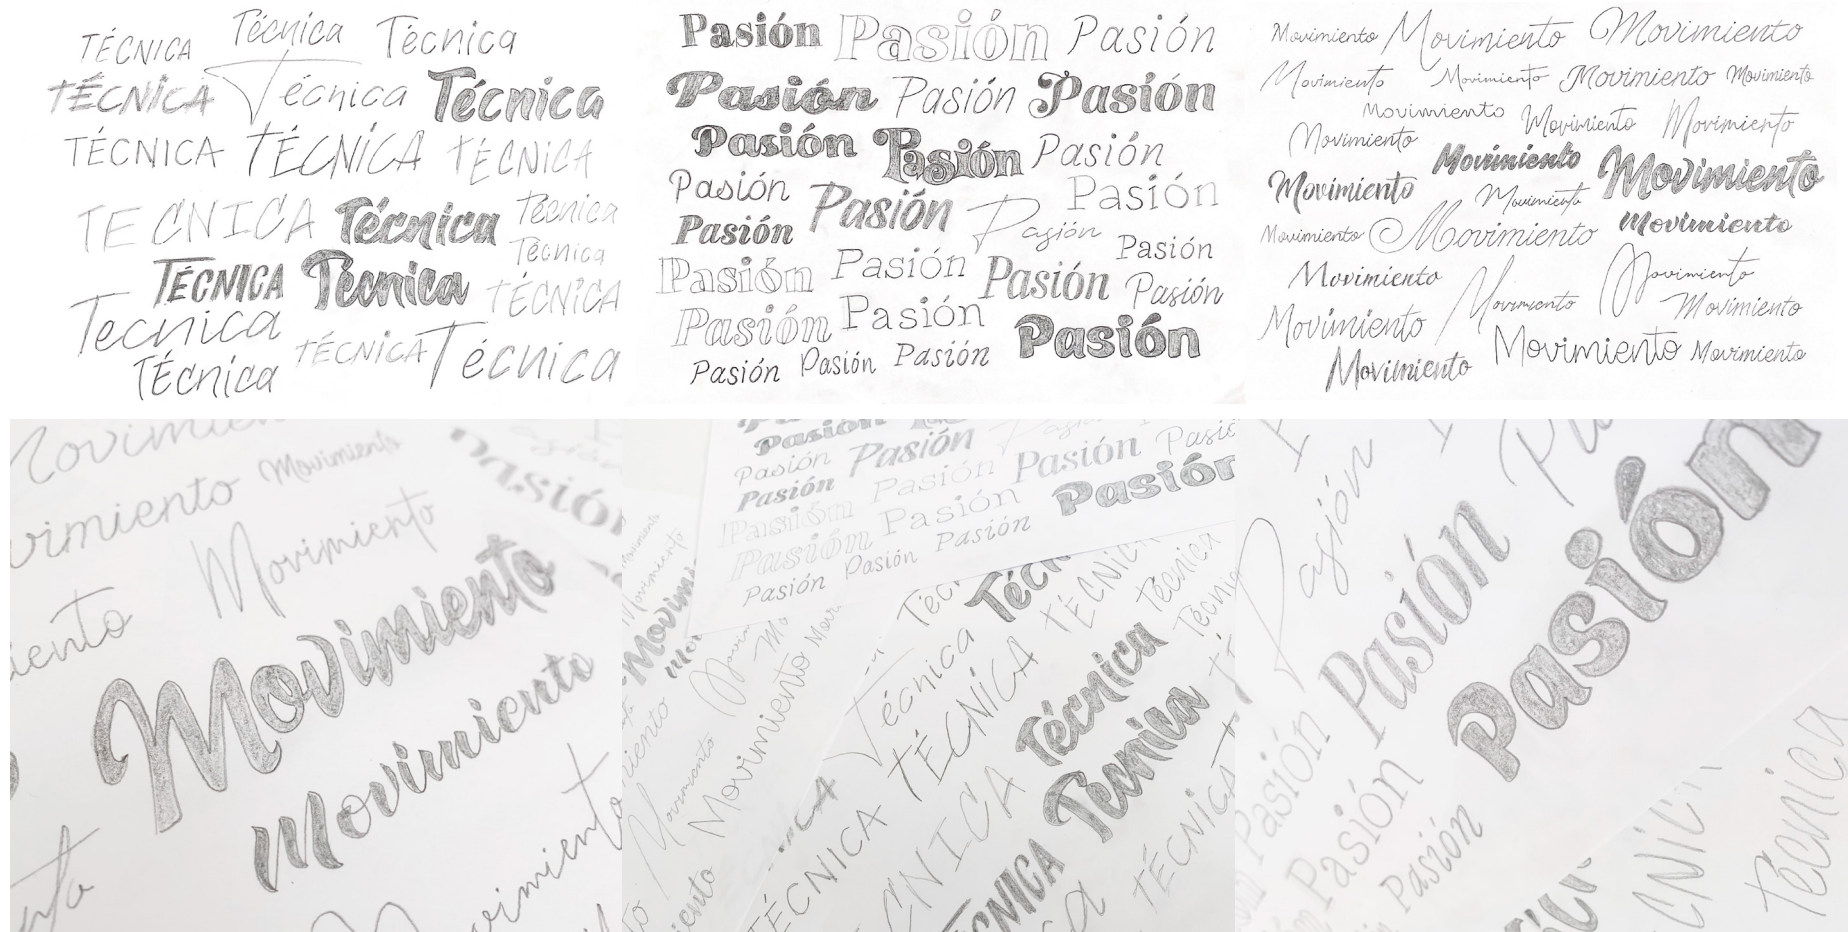 TÉCNICA Técnica Técnica
TÉCNICA Técnica Técnica
TÉCNICA TÉCNICA TÉCNICA
TECNICA Técnica Técnica
Técnica
TÉCNICA Técnica TÉCNICA
Tecnica TÉCNICA Técnica
TÉcnica
Pasión Pasión Pasión
Pasión Pasión Pasión
Pasión Pasión Pasión
Pasión Pasión Pasión
Pasión Pasión Pasión
Pasión Pasión Pasión Pasión
Pasión Pasión Pasión
Pasión Pasión Pasión
Movimiento Movimiento Movimiento
Movimiento Movimiento Movimiento Movimiento
Movimiento Movimiento Movimiento
Movimiento Movimiento Movimiento
Movimiento Movimiento Movimiento
Movimiento Movimiento Movimiento
Movimiento Movimiento
Movimiento Movimiento Movimiento
Movimiento Movimiento Movimiento
Movimiento
vimiento Movimiento Pasión
Movimiento
iento
Movimiento
Movimiento
ovimiento
Pasión
Pasión Pasión Pasión
Pasión Pasión Pasión Pasión
Pasión Pasión
Pasión Pasión Pasión
Movimiento
Movimiento
Movimiento
Movimiento
Técnica TÉCNICA Técnica
Técnica TÉCNICA Técnica
Técnica
TÉCNICA TÉCNICA
Pasión
Pasión Pasión
Pasión Pasión Pasión
Técnica